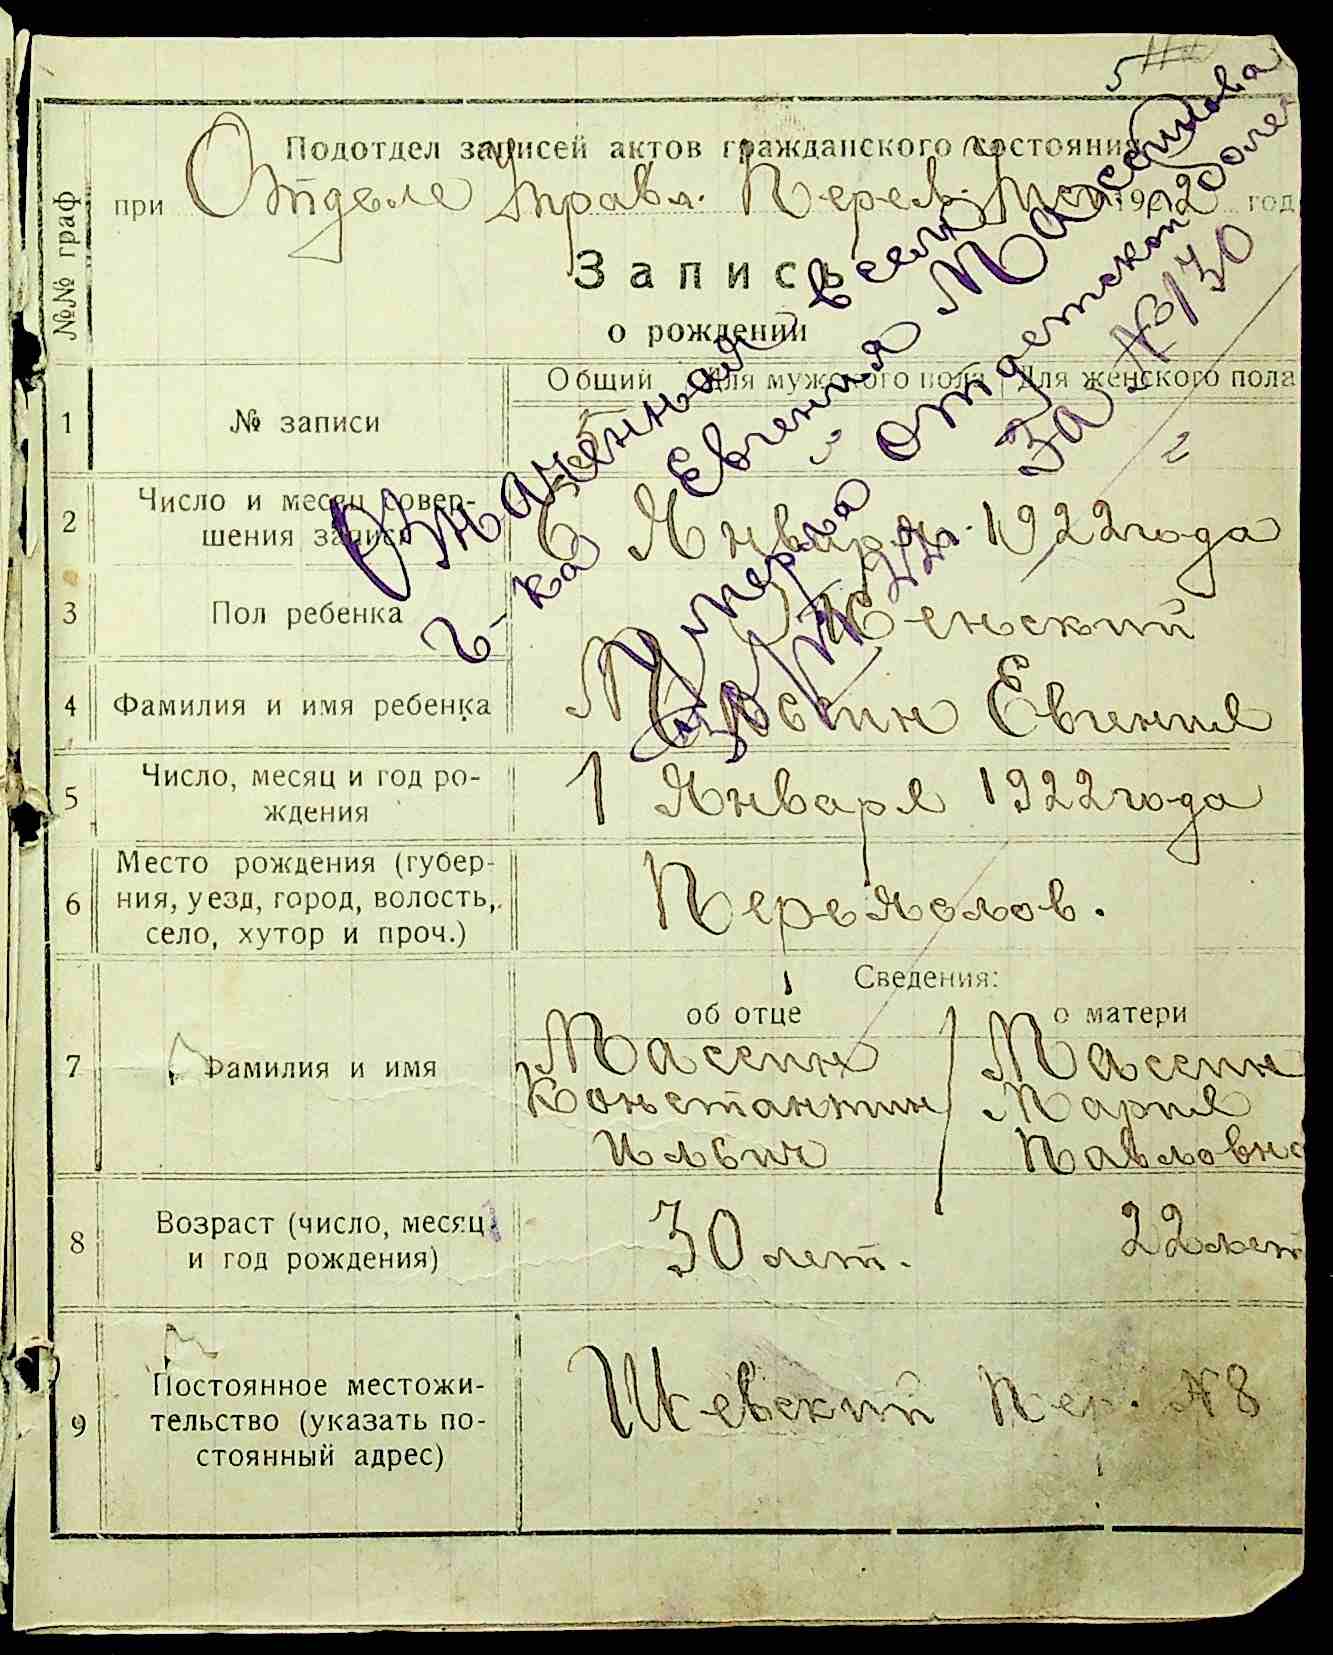 Подотдел записей актов гражданского состояния
при Отделе Управл. Перея. 1922 год
Запись
о рождении
№№ граф
Общий Для мужского пола Для женского пола
1 № записи 5 2
2 Число и месяц совершения записи 6 Января 1922 года
3 Пол ребенка Женский
4 Фамилия и имя ребенка Массин Евгения
5 Число, месяц и год рождения 1 Января 1922 года
6 Место рождения (губерния, уезд, город, волость, село, хутор и проч.)
Сведения:
об отце о матери
7 Фамилия и имя Массин Массин
Константин Мария
Ильич Павловна
8 Возраст (число, месяц и год рождения) 30 лет. 22 лет
9 Постоянное местожительство (указать постоянный адрес) Пер. № 8
Означенная в сем
г-ка Евгения Массинова
умерла от детской
за № 130